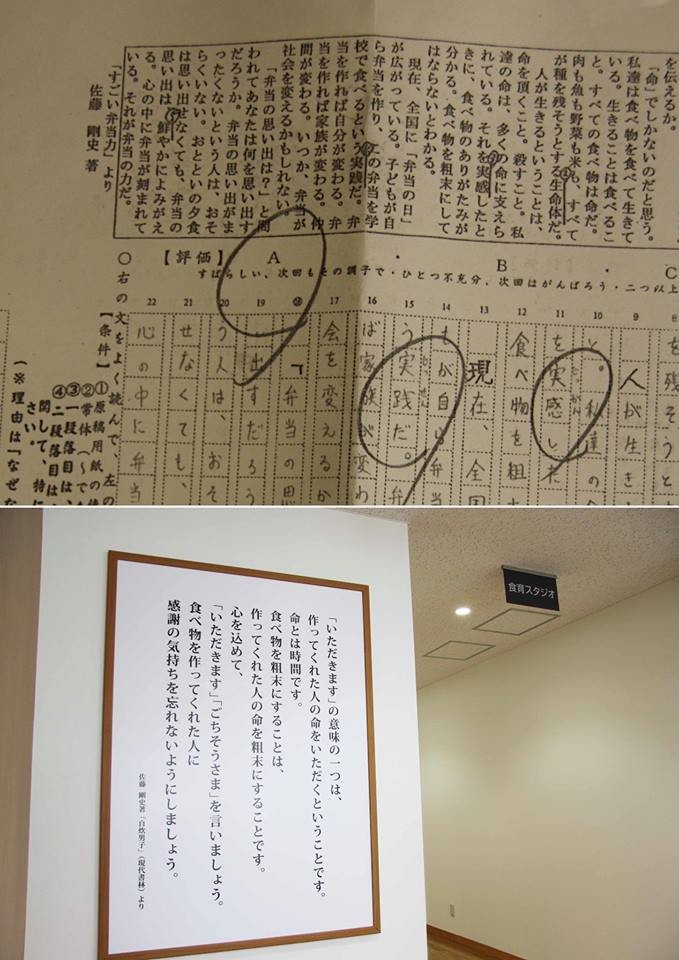 を伝えるか。
「命」でしかないのだと思う。
私達は食べ物を食べて生きて
いる。生きることは食べるこ
と。すべての食べ物は命だ。
肉も魚も野菜も米も、すべて
が種を残そうとする生命体だ。
人が生きるということは、
命を頂くこと。殺すこと。私
達の命は、多くの命に支えら
れている。それを実感したと
きに、食べ物のありがたみが
分かる。食べ物を粗末にして
はならないとわかる。
現在、全国に「弁当の日」
が広がっている。子どもが自
ら弁当を作り、その弁当を学
校で食べるという実践だ。弁
当を作れば自分が変わる。弁
当を作れば家族が変わる。仲
間が変わる。いつか、弁当が
社会を変えるかもしれない。
「弁当の思い出は?」と問
われてあなたは何を思い出す
だろうか。弁当の思い出がま
ったくないという人は、おそ
らくいない。おとといの夕食
は思い出せなくても、弁当の
思い出は、鮮やかによみがえ
る。心の中に弁当が刻まれて
いる。それが弁当の力だ。
「すごい弁当力」より
佐藤 剛史 著
【評価】 A ・ B ・ C
すばらしい、次回もその調子で・ひとつ不充分、次回はがんばろう・二つ以上
8 9 10 11 12 13 14 15 16 17 18 19 20 21 22
を残そうと
人が生き
と。私達の
を実感した
食べ物を粗
現在、全国
もが自ら弁当
う実践だ。弁
ば家族が変わ
会を変えるか
「弁当の思
い出すだろう
う人は、おそ
せなくても、
心の中に弁当
○右の文をよく読んで、左の
【条件】
①原稿用紙の使
②常体(〜で
③一段落目は、
④二段落目は
関して、特に
さい。
(※理由は「なぜな
食育スタジオ
「いただきます」の意味の一つは、
作ってくれた人の命をいただくということです。
命とは時間です。
食べ物を粗末にすることは、
作ってくれた人の命を粗末にすることです。
心を込めて、
「いただきます」「ごちそうさま」を言いましょう。
食べ物を作ってくれた人に
感謝の気持ちを忘れないようにしましょう。
佐藤 剛史著「自炊男子」(現代書林)より